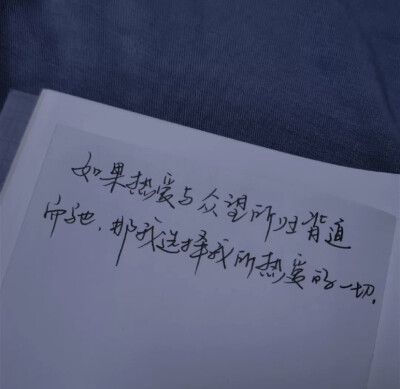 如果热爱与众望所归背道
而驰.那我选择我所热爱的一切.